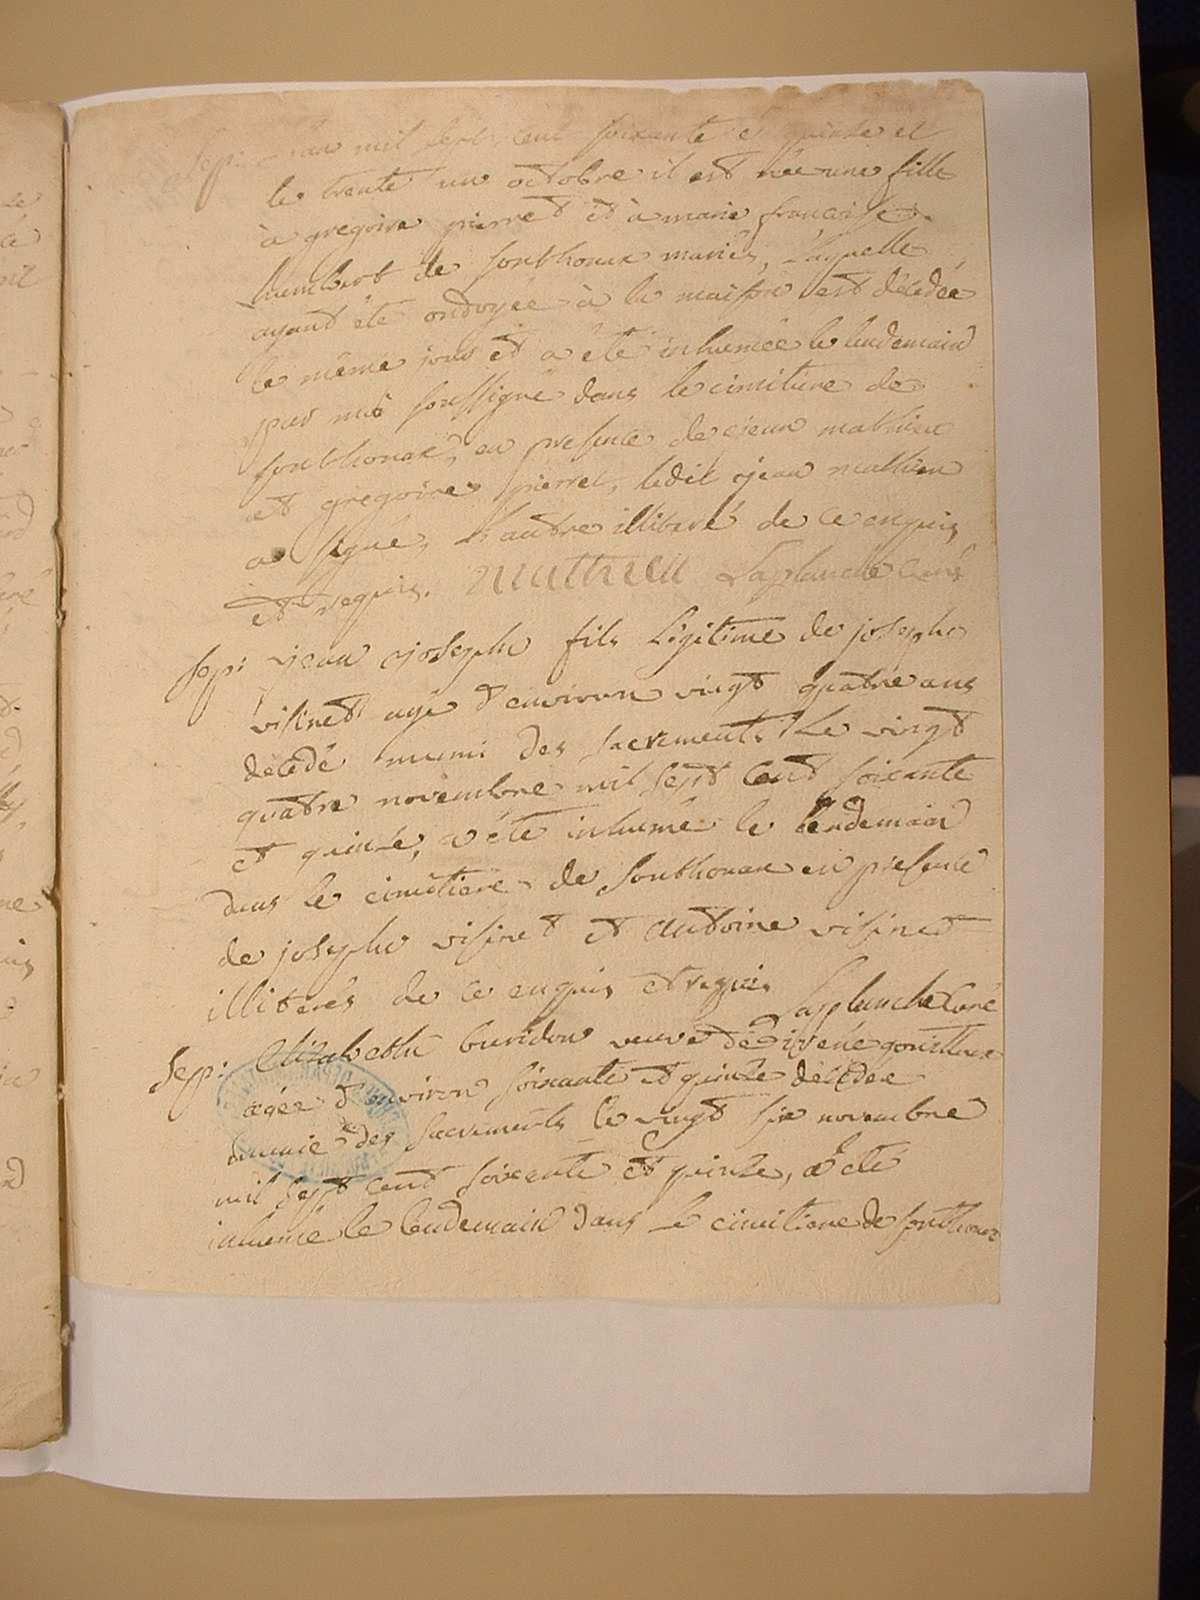 Sep: l'an mil sept cent soixante et quinze et
le trente un octobre il est née une fille
à gregoire pierret et à marie françoise
humbert de fonthonax mariés, laquelle
ayant été ondoyée à la maison est décédée
le même jour et a été inhumée le lendemain
par moi soussigné dans le cimitiere de
fonthonax, en presence de jean mathieu
et gregoire pierret, ledit jean mathieu
a signé, l'autre illiteré de ce enquis
et requis. mathieu Laplanche Curé
Sep: jean joseph fils légitime de joseph
visinet agé d'environ vingt quatre ans
décédé muni des sacrements le vingt
quatre novembre mil sept cent soixante
et quinze, a été inhumé le lendemain
dans le cimitiere de fonthonax en presence
de joseph visinet et antoine visinet
illiterés de ce enquis et requis Laplanche Curé
Sep: Elizabeth buridon veuve de
agée d'environ soixante et quinze décédée
munie des sacrements le vingt six novembre
mil sept cent soixante et quinze, a été
inhumée le lendemain dans le cimitiere de fonthonax